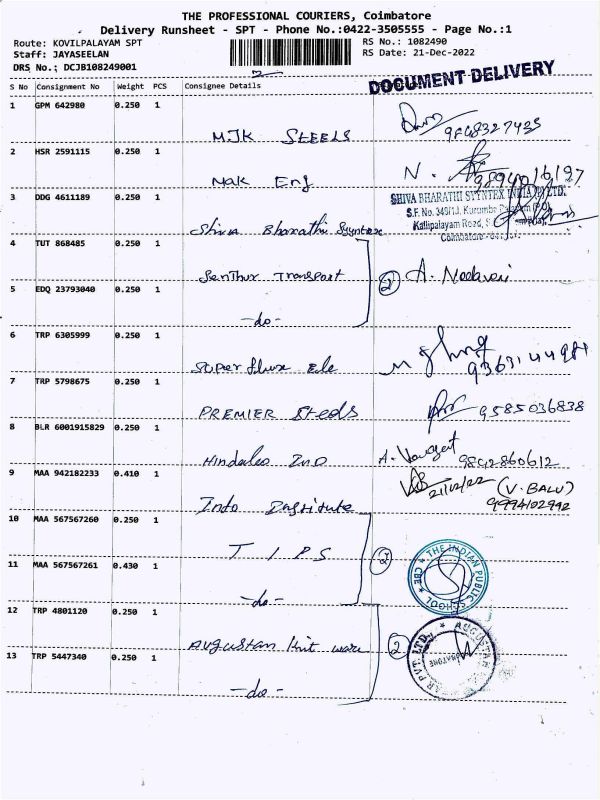 THE PROFESSIONAL COURIERS, Coimbatore
Delivery Runsheet - SPT - Phone No.:0422-3505555 - Page No.:1
Route: KOVILPALAYAM SPT RS No.: 1082490
Staff: JAYASEELAN RS Date: 21-Dec-2022
DRS No.: DCJB108249001
DOCUMENT DELIVERY
S No Consignment No Weight PCS Consignee Details
1 GPM 642980 0.250 1
MJK STEELS
2 HSR 2591115 0.250 1
Mak Eng N.
3 DDG 4611189 0.250 1
SHIVA BHARATHI SYYNTEX INDIA (P) LTD.
Kallipalayam Road,
Coimbatore
Shiva Bharathi Syyntex
4 TUT 868485 0.250 1
Senthur Transport 2 A.
5 EDQ 23793040 0.250 1
-do-
6 TRP 6305999 0.250 1
Super flux Ele
7 TRP 5798675 0.250 1
PREMIER Steds 9585036838
8 BLR 6001915829 0.250 1
Hindalco IND A. 9842860612
9 MAA 942182233 0.410 1
21/12/22 (V. BALU)
9994102992
Indo
10 MAA 567567260 0.250 1
T I P S 2
THE INDIAN PUBLIC SCHOOL CBE
11 MAA 567567261 0.430 1
-do-
12 TRP 4801120 0.250 1
Augustan Knit ware 2
AUGUSTAN PVT. LTD.
13 TRP 5447340 0.250 1
-do-